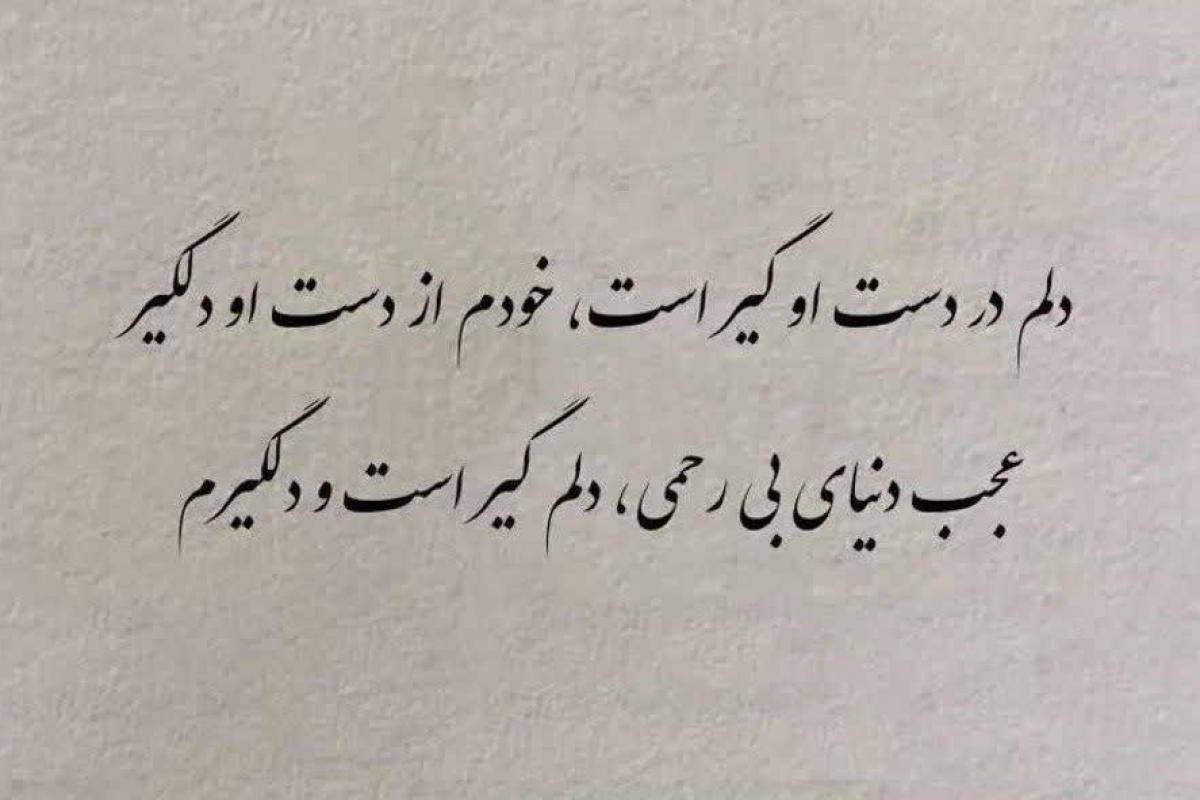 دلم در دست او گیر است، خودم از دست او دلگیر
عجب دنیای بی رحمی، دلم گیر است و دلگیرم